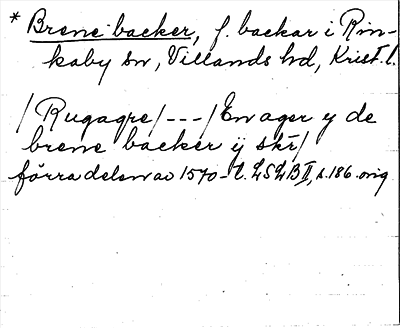 * Brene backer, f. backar i Rin-
kaby sn, Villands hd, Krist. l.
/Rugagre/---/En ager y de
brene backer ÿ skr/
förra delen av 1570-t. LSLB II, s. 186. orig